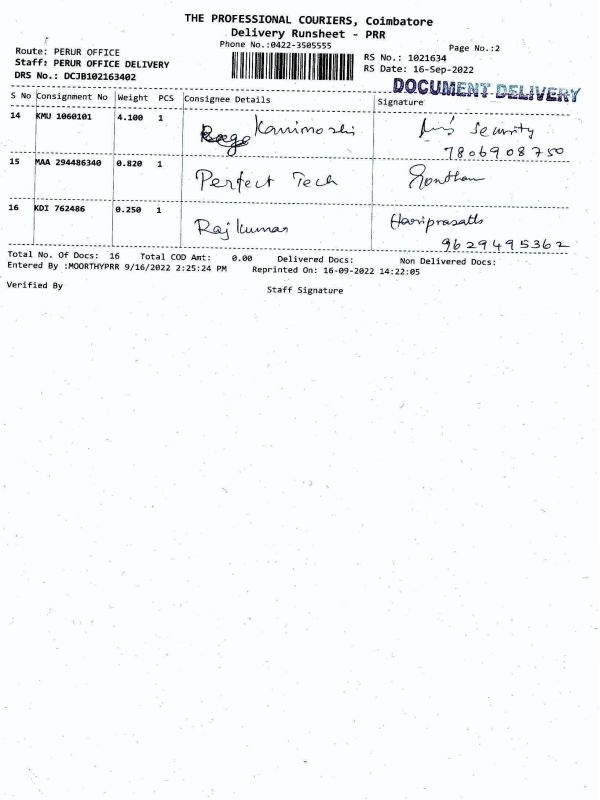 THE PROFESSIONAL COURIERS, Coimbatore
Delivery Runsheet - PRR
Phone No.:0422-3505555
Page No.:2
Route: PERUR OFFICE
Staff: PERUR OFFICE DELIVERY
DRS No.: DCJB102163402
RS No.: 1021634
RS Date: 16-Sep-2022
DOCUMENT DELIVERY
S No Consignment No Weight PCS Consignee Details Signature
14 KMU 1060101 4.100 1 Kanimoshi Security
7806908750
15 MAA 294486340 0.820 1 Perfect Tech
16 KDI 762486 0.250 1 Raj kumar Hariprasath
9629495362
Total No. Of Docs: 16 Total COD Amt: 0.00 Delivered Docs: Non Delivered Docs:
Entered By :MOORTHYPRR 9/16/2022 2:25:24 PM Reprinted On: 16-09-2022 14:22:05
Verified By Staff Signature